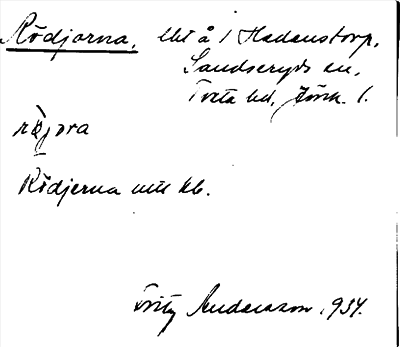 Rödjorna, lht å 1 Hadanstorp,
Sandseryds sn,
Tveta hd, Jönk. l.
röjora
Rödjerna enl kb.
Fritz Andersson, 1934.